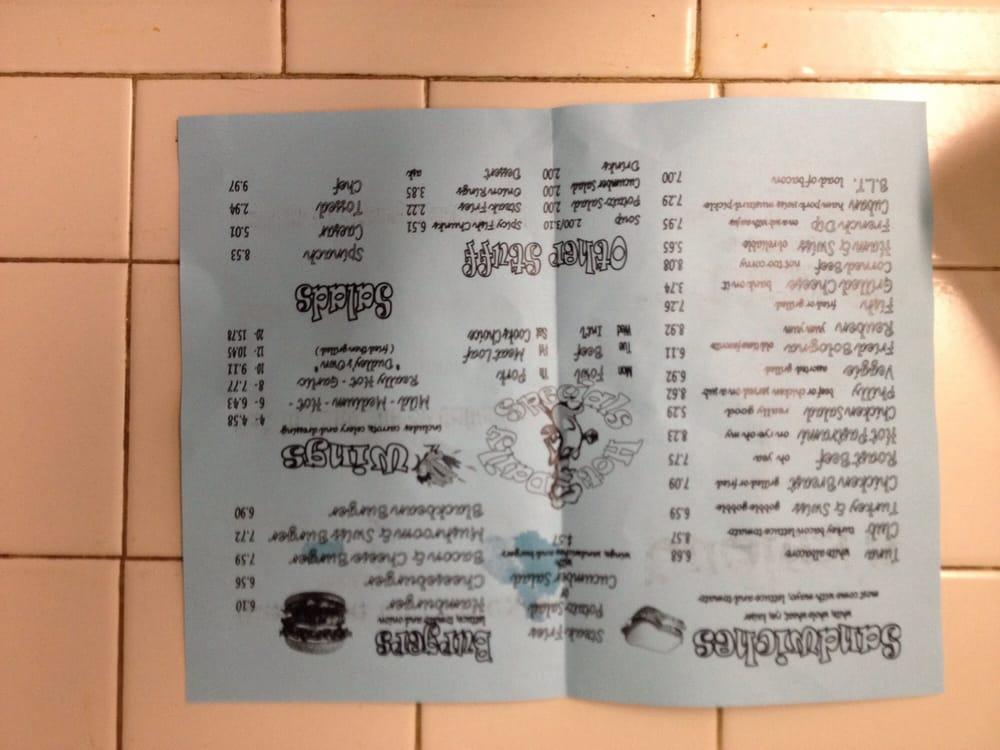 Sandwiches
white, whole wheat, rye, kaiser
most come with mayo, lettuce and tomato
Tuna white albacore 6.68
Club turkey bacon lettuce tomato 8.57
Turkey & Swiss gobble gobble 6.59
Chicken Breast grilled or fried 7.09
Roast Beef oh yea 7.75
Hot Pastrami on rye oh my 8.23
Chicken Salad really good 5.29
Philly beef or chicken served on a sub 8.62
Veggie assorted grilled 6.92
Fried Bologna old time favorite 6.11
Reuben yum yum 8.92
Fish fried or grilled 7.26
Grilled Cheese bank on it 3.74
Corned Beef not too corny 8.08
Ham & Swiss ol reliable 5.65
French Dip on a roll with au jus 7.95
Cuban ham pork swiss mustard pickle 7.29
B.L.T. load of bacon 7.00
Steak Fries
Potato Salad
or
Cucumber Salad
with
wings, sandwiches and burgers
1.57
Burgers
lettuce, tomato and onion
Hamburger 6.10
Cheeseburger 6.56
Bacon & Cheese Burger 7.59
Mushroom & Swiss Burger 7.72
Blackbean Burger 6.90
Daily Hot Specials
Mon Fowl Th Pork
Tue Beef Fri Meat Loaf
Wed Int'l Sat Cook's Choice
Wings
includes carrots, celery and dressing
Mild - Medium - Hot -
Really Hot - Garlic
"Dudley's Own"
(fried then grilled)
4- 4.58
6- 6.43
8- 7.77
10- 9.11
12- 10.45
20- 15.78
Other Stuff
Soup 2.00/3.10 Spicy Fish Chunks 6.51
Potato Salad 2.00 Steak Fries 2.22
Cucumber Salad 2.00 Onion Rings 3.85
Drinks 2.00 Dessert ask
Salads
Spinach 8.53
Caesar 5.01
Tossed 2.94
Chef 9.97